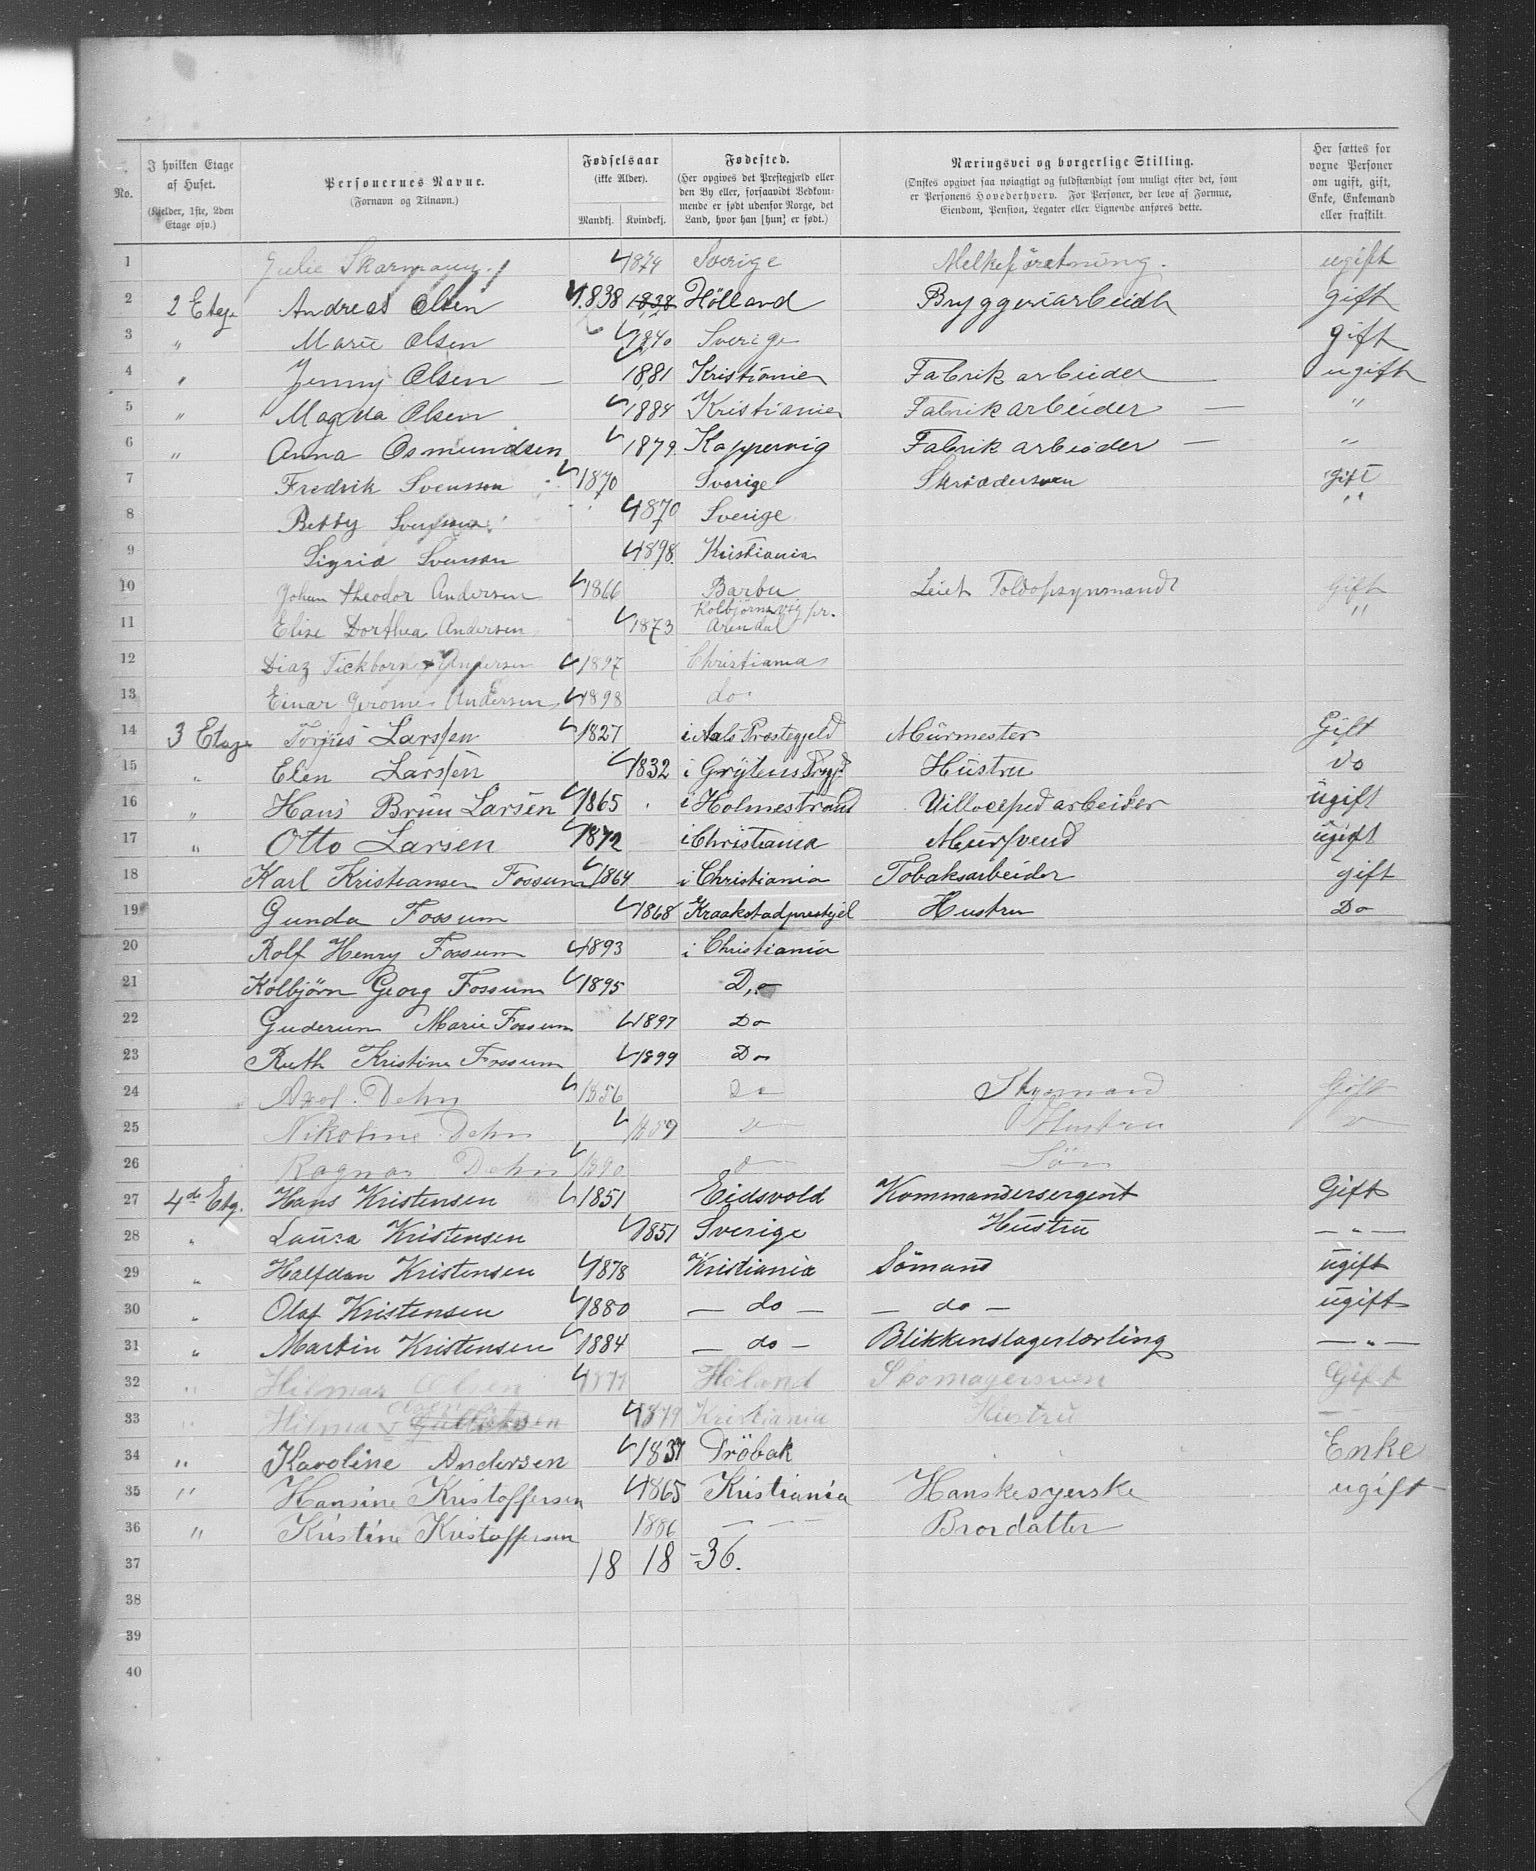 No.
I hvilken Etage af Huset. (Kjelder, 1ste, 2den Etage osv.)
Personernes Navne. (Fornavn og Tilnavn.)
Fødselsaar (ikke Alder). Mandkj. Kvindekj.
Fødested. (Her opgives det Prestegjæld eller den By eller, forsaavidt Vedkommende er født udenfor Norge, det Land, hvor han [hun] er født.)
Næringsvei og borgerlige Stilling. (Ønskes opgivet saa nøiagtigt og fuldstændigt som muligt efter det, som er Personens Hovederhverv. For Personer, der leve af Formue, Eiendom, Pension, Legater eller Lignende anføres dette.
Her sættes for voxne Personer om ugift, gift, Enke, Enkemand eller fraskilt.
1 Julie Skarmann 1874 Sverige Melkeforetning. ugift
2 2 Etage Andreas Olsen 1838 1838 Hölland Bryggeriarbeidr gift
3 " Marie Olsen 1840 Sverige gift
4 " Jenny Olsen 1881 Kristiania Fabrikarbeider ugift
5 " Magda Olsen 1884 Kristiania Fabrikarbeider "
6 " Anna Osmundsen 1879 Koppervig Fabrikarbeider "
7 Fredrik Svensson 1870 Sverige Skrædersven gift
8 Betty Svensson 1870 Sverige "
9 Sigrid Svenson 1898 Kristiania
10 Johan Theodor Andersen 1866 Barbu Leiet Toldopsynsmandt Gift
11 Elise Dorthea Andersen 1873 Kolbjørnsvig pr. Arendal "
12 Diaz Tickborne Andersen 1897 Christiania
13 Einar Jerome Andersen 1898 do.
14 3 Etage Torjus Larssen 1827 i Aals Præstegjeld Mürmester Gift
15 " Elen Larssen 1832 i Grÿtens Hüstru do
16 " Hans Brun Larsen 1865 i Holmestrand arbeider ügift
17 " Otto Larsen 1872 i Christiania Mursvend ügift
18 Karl Kristiansen Fossum 1864 i Christiania Tobaksarbeider gift
19 Gunda Fossum 1868 Kraakstadprestgjel Hustru Do
20 Rolf Henry Fossum 1893 i Christiania
21 Kolbjörn Georg Fossum 1895 Do
22 Guderun Marie Fossum 1897 Do
23 Ruth Kristine Fossum 1899 Do
24 Axel Dehn 1856 Do Gift
25 Nikoline Dehn 1859 Hustru
26 Ragnar Dehn 1890 Sön
27 4de Etg. Hans Kristensen 1851 Eidsvold Kommandersergent Gift
28 " Laura Kristensen 1851 Sverige Hüstru — " —
29 " Halfdan Kristensen 1878 Kristiania Sömand ügift
30 " Olaf Kristensen 1880 — do — — do — ügift
31 " Martin Kristensen 1884 — do — Blikkenslagerlærling — " —
32 " Hilmar Olsen 1877 Höland Skomagersven Gift
33 " Hilma Olsen 1879 Kristiania Hustrü —
34 " Karoline Andersen 1837 Dröbak Enke
35 " Hansine Kristoffersen 1865 Kristiania Hanskesyerske ugift
36 " Kristine Kristoffersen 1886 — — — Brordatter
37 18 18 =36.
38
39
40